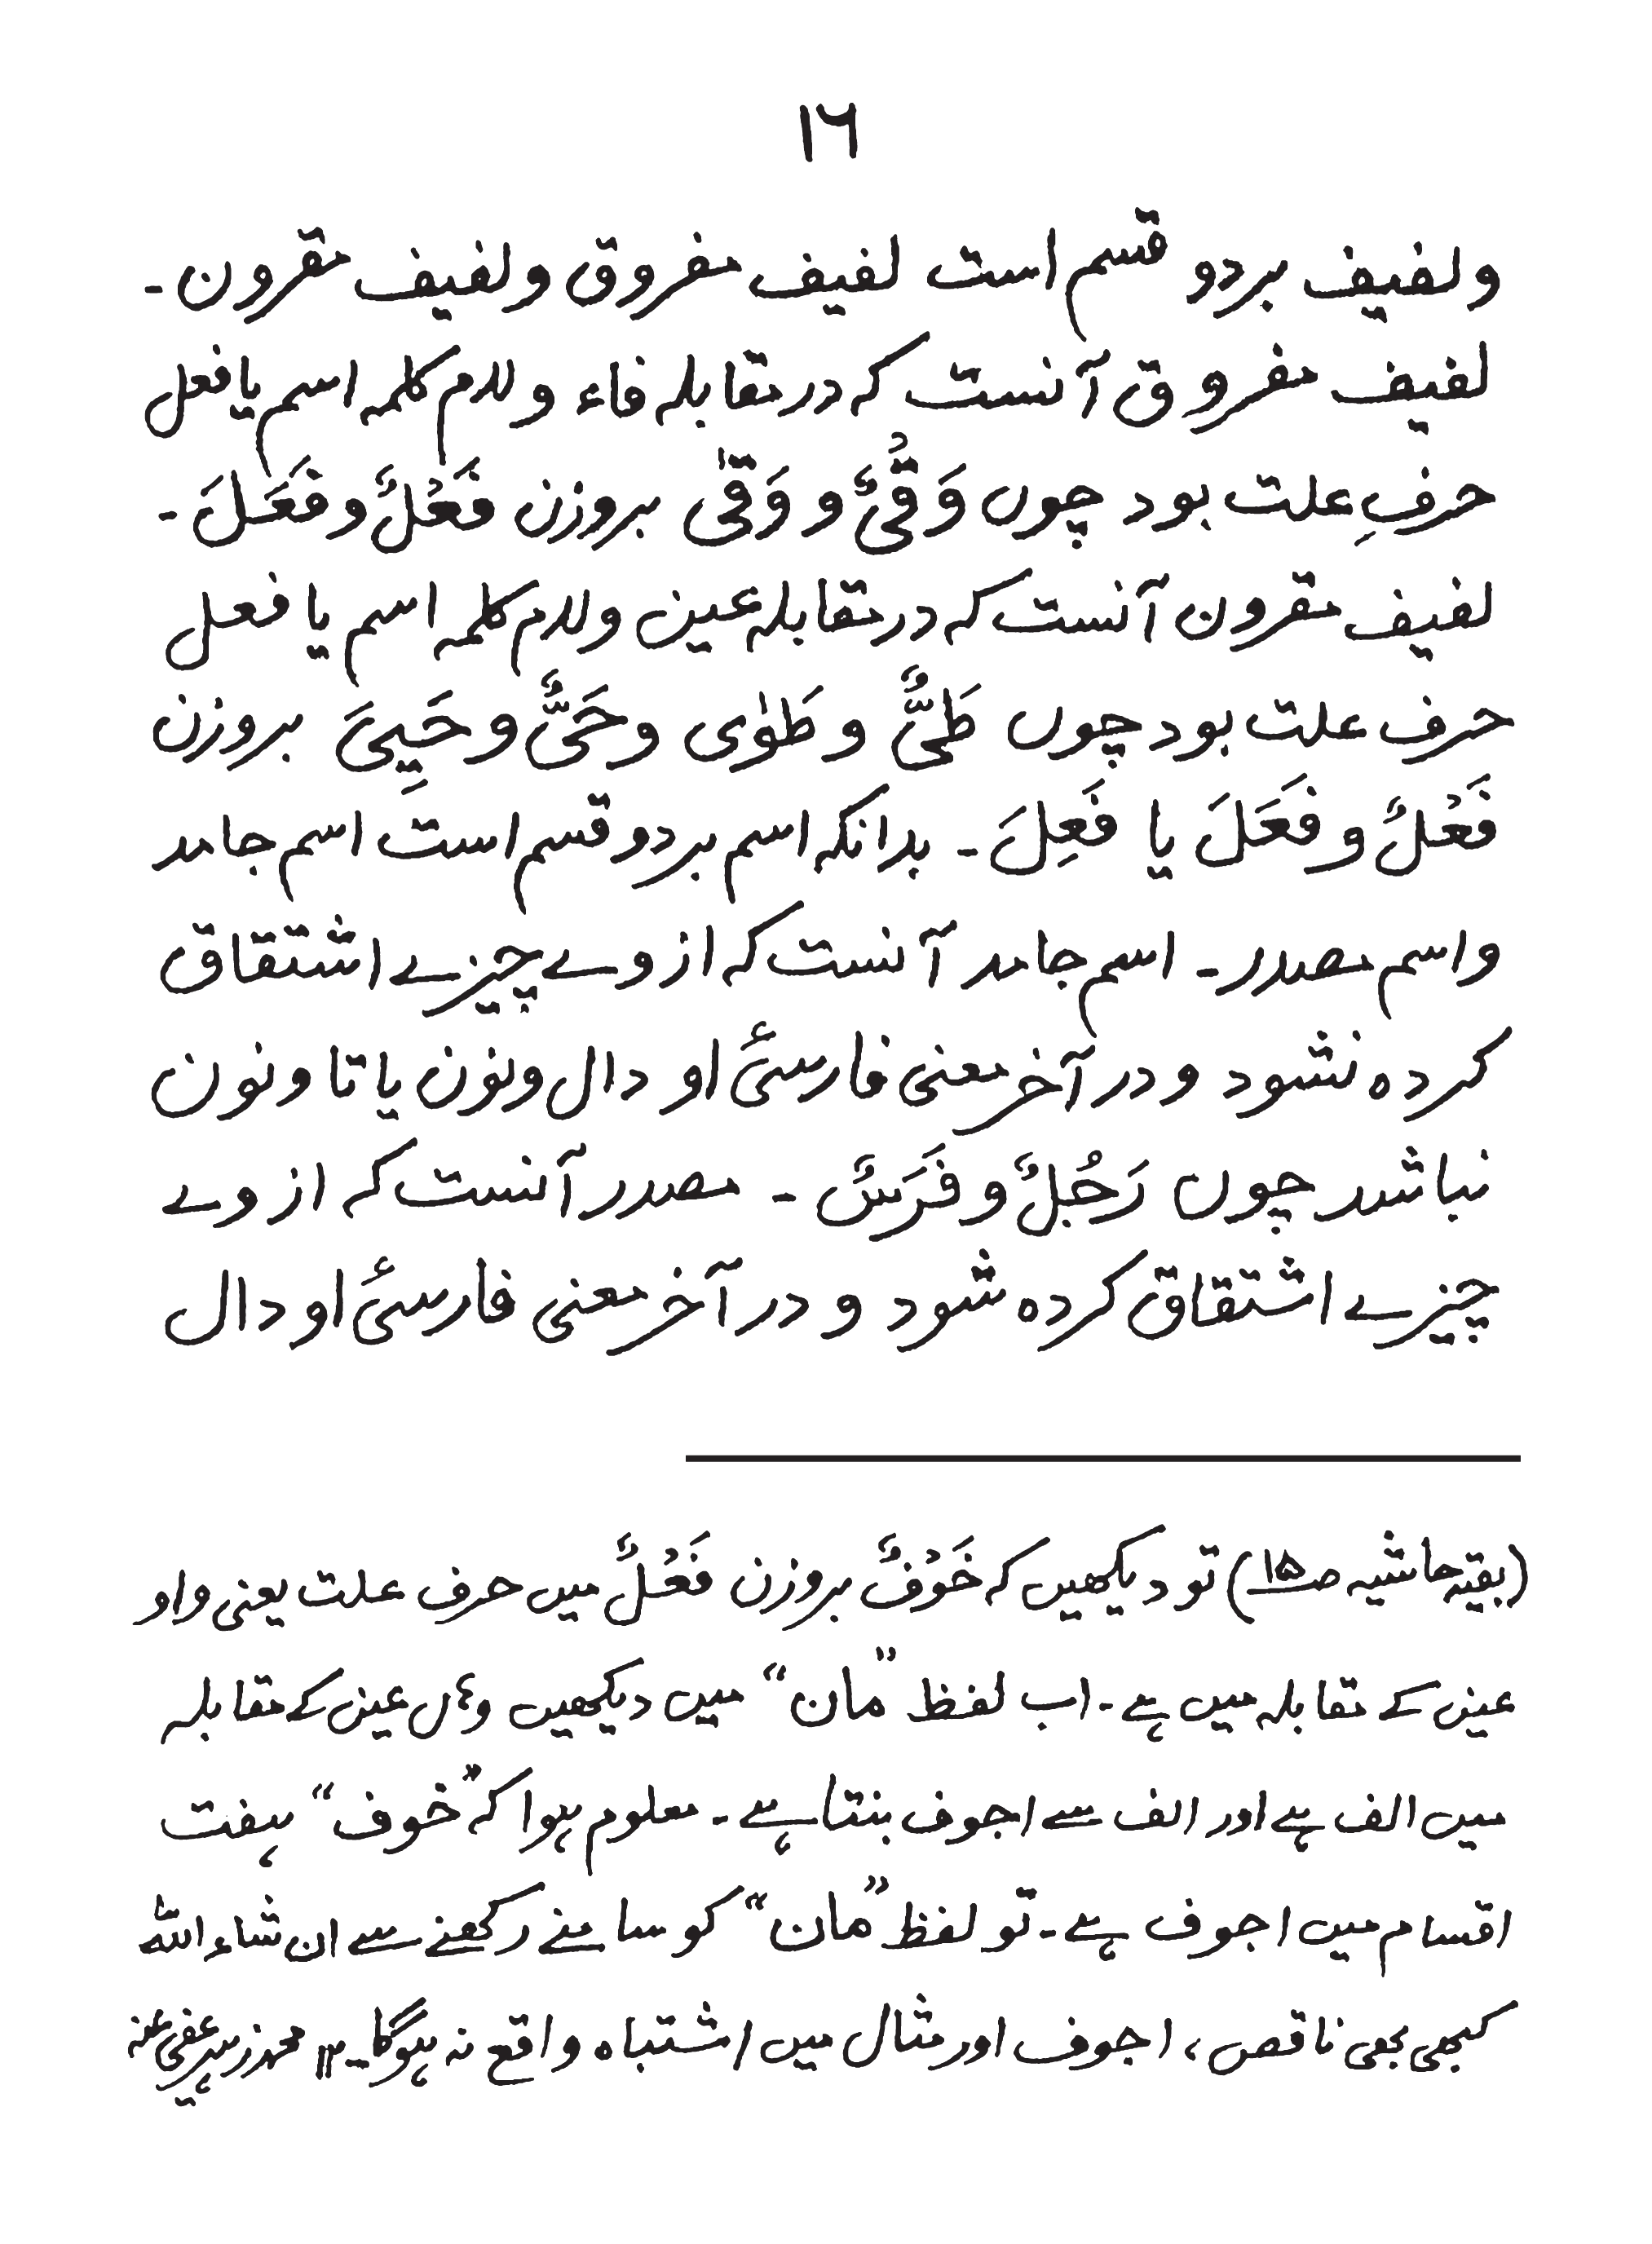 ۱۶
ولفیف بردو قسم است لفیف مفروق ولفیف مقرون۔
لفیف مفروق آنست کہ در مقابلہ فاء و لام کلمہ اسم یا فعل
حرفِ علت بود چوں وَقْیٌ و وَقٰی بروزن فَعْلٌ و فَعَلَ۔
لفیف مقرون آنست کہ در مقابلہ عین و لام کلمہ اسم یا فعل
حرف علت بود چوں طَیٌّ و طَوٰی و حَیٌّ و حَیِیَ بروزن
فَعْلٌ و فَعَلَ یا فَعِلَ۔ بدانکہ اسم بردو قسم است اسم جامد
واسم مصدر۔ اسم جامد آنست کہ از وے چیزے اشتقاق
کردہ نشود و در آخر معنی فارسیٔ او دال ونون یا تا ونون
نباشد چوں رَجُلٌ و فَرَسٌ۔ مصدر آنست کہ از وے
چیزے اشتقاق کردہ شود و در آخر معنی فارسیٔ او دال
(بقیہ حاشیہ صـ۱۵) تو دیکھیں کہ خَوْفٌ بروزن فَعْلٌ میں حرف علت یعنی واو
عین کے مقابلہ میں ہے۔ اب لفظ ”مان“ میں دیکھیں وہاں عین کے مقابلہ
میں الف ہے اور الف سے اجوف بنتا ہے۔ معلوم ہوا کہ ”خوف“ ہفت
اقسام میں اجوف ہے۔ تو لفظ ”مان“ کو سامنے رکھنے سے ان شاء اللہ
کبھی بھی ناقص، اجوف اور مثال میں اشتباہ واقع نہ ہوگا۔ ۱۲ محمد زبیر عفی عنہ